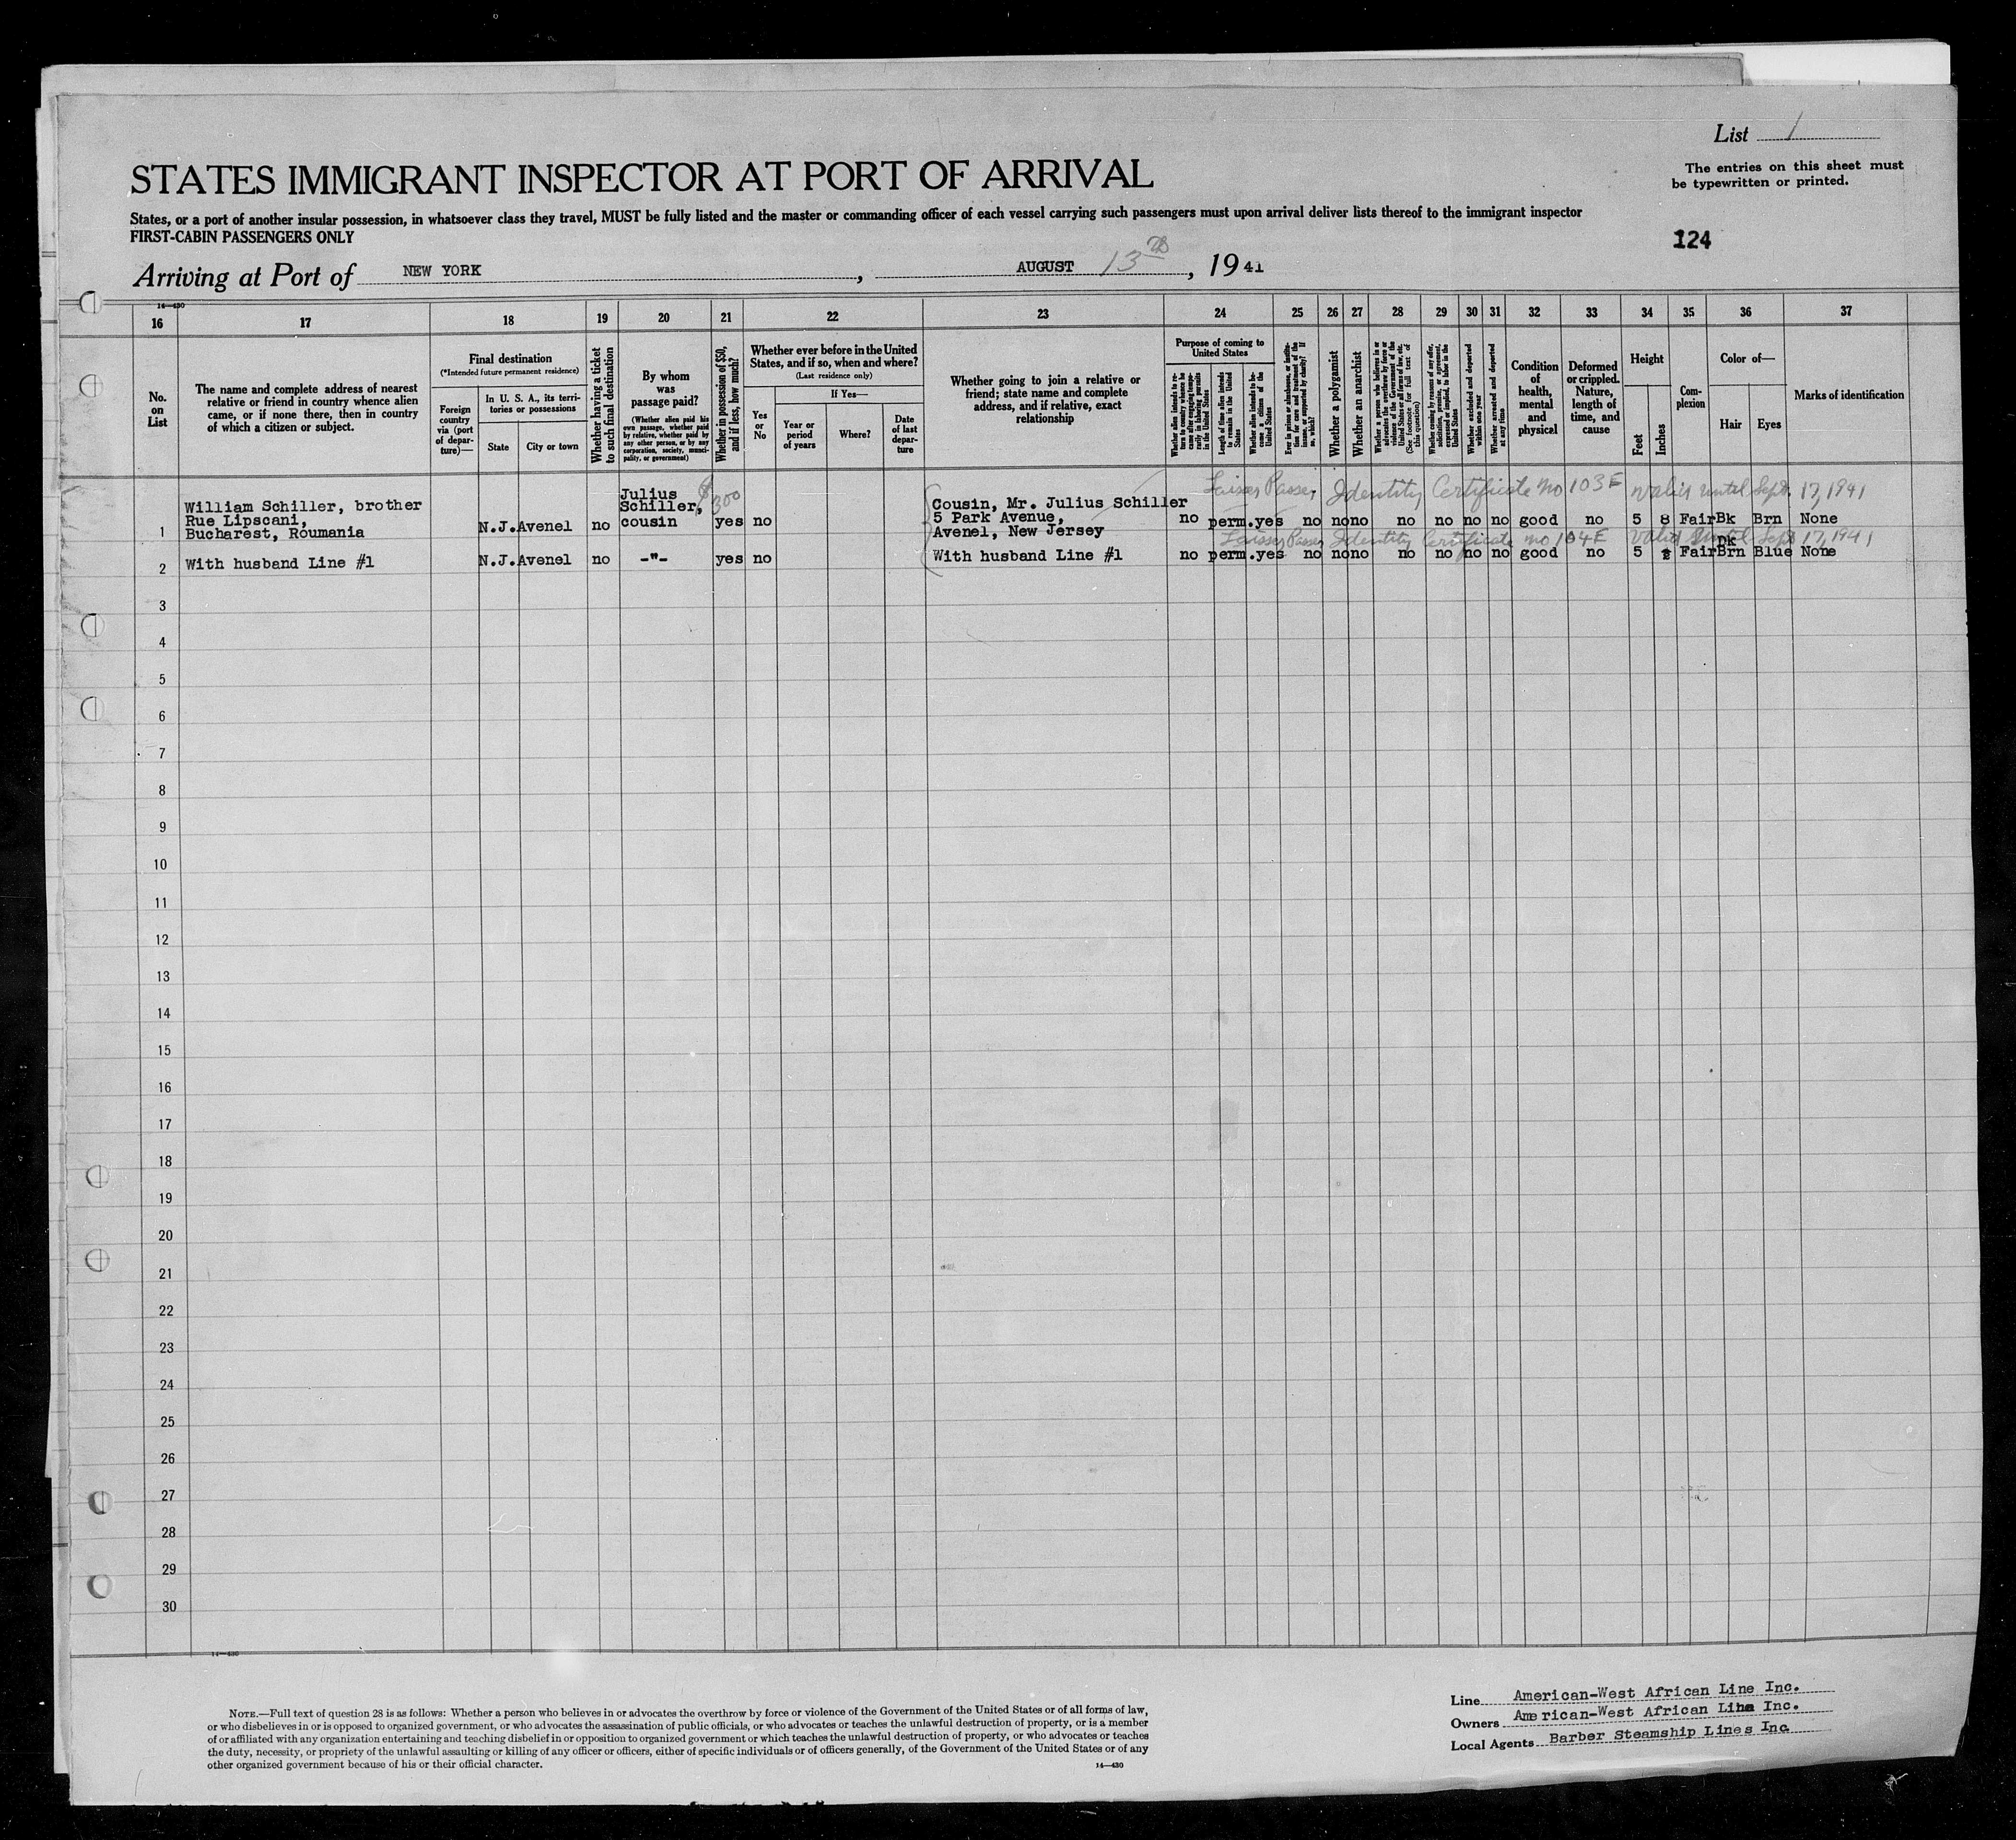 List 1
The entries on this sheet must
be typewritten or printed.
STATES IMMIGRANT INSPECTOR AT PORT OF ARRIVAL
States, or a port of another insular possession, in whatsoever class they travel, MUST be fully listed and the master or commanding officer of each vessel carrying such passengers must upon arrival deliver lists thereof to the immigrant inspector
FIRST-CABIN PASSENGERS ONLY
124
Arriving at Port of NEW YORK, AUGUST 13th, 1941
14—430
16 17 18 19 20 21 22 23 24 25 26 27 28 29 30 31 32 33 34 35 36 37
No.
on
List
The name and complete address of nearest
relative or friend in country whence alien
came, or if none there, then in country
of which a citizen or subject.
Final destination
(*Intended future permanent residence)
Foreign
country
via (port
of depar-
ture)—
In U. S. A., its terri-
tories or possessions
State
City or town
Whether having a ticket
to such final destination
By whom
was
passage paid?
(Whether alien paid his
own passage, whether paid
by relative, whether paid by
any other person, or by any
corporation, society, munici-
pality, or government)
Whether in possession of $50,
and if less, how much?
Whether ever before in the United
States, and if so, when and where?
(Last residence only)
Yes
or
No
If Yes—
Year or
period
of years
Where?
Date
of last
depar-
ture
Whether going to join a relative or
friend; state name and complete
address, and if relative, exact
relationship
Purpose of coming to
United States
Whether alien intends to re-
turn to country whence he
came after engaging tempo-
rarily in laboring pursuits
in the United States
Length of time alien intends
to remain in the United
States
Whether alien intends to be-
come a citizen of the
United States
Ever in prison or almshouse, or institu-
tion for care and treatment of the
insane, or supported by charity? If
so, which?
Whether a polygamist
Whether an anarchist
Whether a person who believes in or
advocates the overthrow by force or
violence of the Government of the
United States or all forms of law, etc.
(See footnote for full text of
this question)
Whether coming by reason of any offer,
solicitation, promise, or agreement,
expressed or implied, to labor in the
United States
Whether excluded and deported
within one year
Whether arrested and deported
at any time
Condition
of
health,
mental
and
physical
Deformed
or crippled.
Nature,
length of
time, and
cause
Height
Feet
Inches
Com-
plexion
Color of—
Hair
Eyes
Marks of identification
Laisser Passer Identity Certificate No 103E valid until Sept. 17, 1941
1
William Schiller, brother
Rue Lipscani,
Bucharest, Roumania
N.J. Avenel no
Julius
Schiller,
cousin
$300
yes no
Cousin, Mr. Julius Schiller
5 Park Avenue,
Avenel, New Jersey
no perm. yes no no no no no no no good no 5 8 Fair Bk Brn None
Laisser Passer Identity Certificate no 104E Valid Until Sept 17, 1941
2 With husband Line #1 N.J. Avenel no -"- yes no With husband Line #1 no perm. yes no no no no no no no good no 5 Fair Brn Blue None
3
4
5
6
7
8
9
10
11
12
13
14
15
16
17
18
19
20
21
22
23
24
25
26
27
28
29
30
14—430
NOTE.—Full text of question 28 is as follows: Whether a person who believes in or advocates the overthrow by force or violence of the Government of the United States or of all forms of law,
or who disbelieves in or is opposed to organized government, or who advocates the assassination of public officials, or who advocates or teaches the unlawful destruction of property, or is a member
of or affiliated with any organization entertaining and teaching disbelief in or opposition to organized government or which teaches the unlawful destruction of property, or who advocates or teaches
the duty, necessity, or propriety of the unlawful assaulting or killing of any officer or officers, either of specific individuals or of officers generally, of the Government of the United States or of any
other organized government because of his or their official character.
14—430
Line American-West African Line Inc.
Owners American-West African Line Inc.
Local Agents Barber Steamship Lines Inc